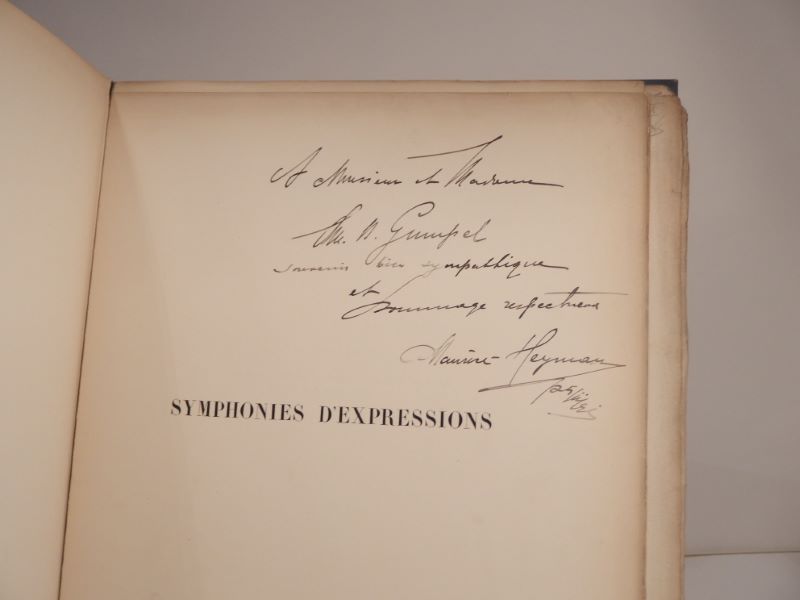 A Monsieur et Madame
Gumpel
souvenir bien sympathique
et
hommage respectueux
Maurice Heyman
SYMPHONIES D'EXPRESSIONS